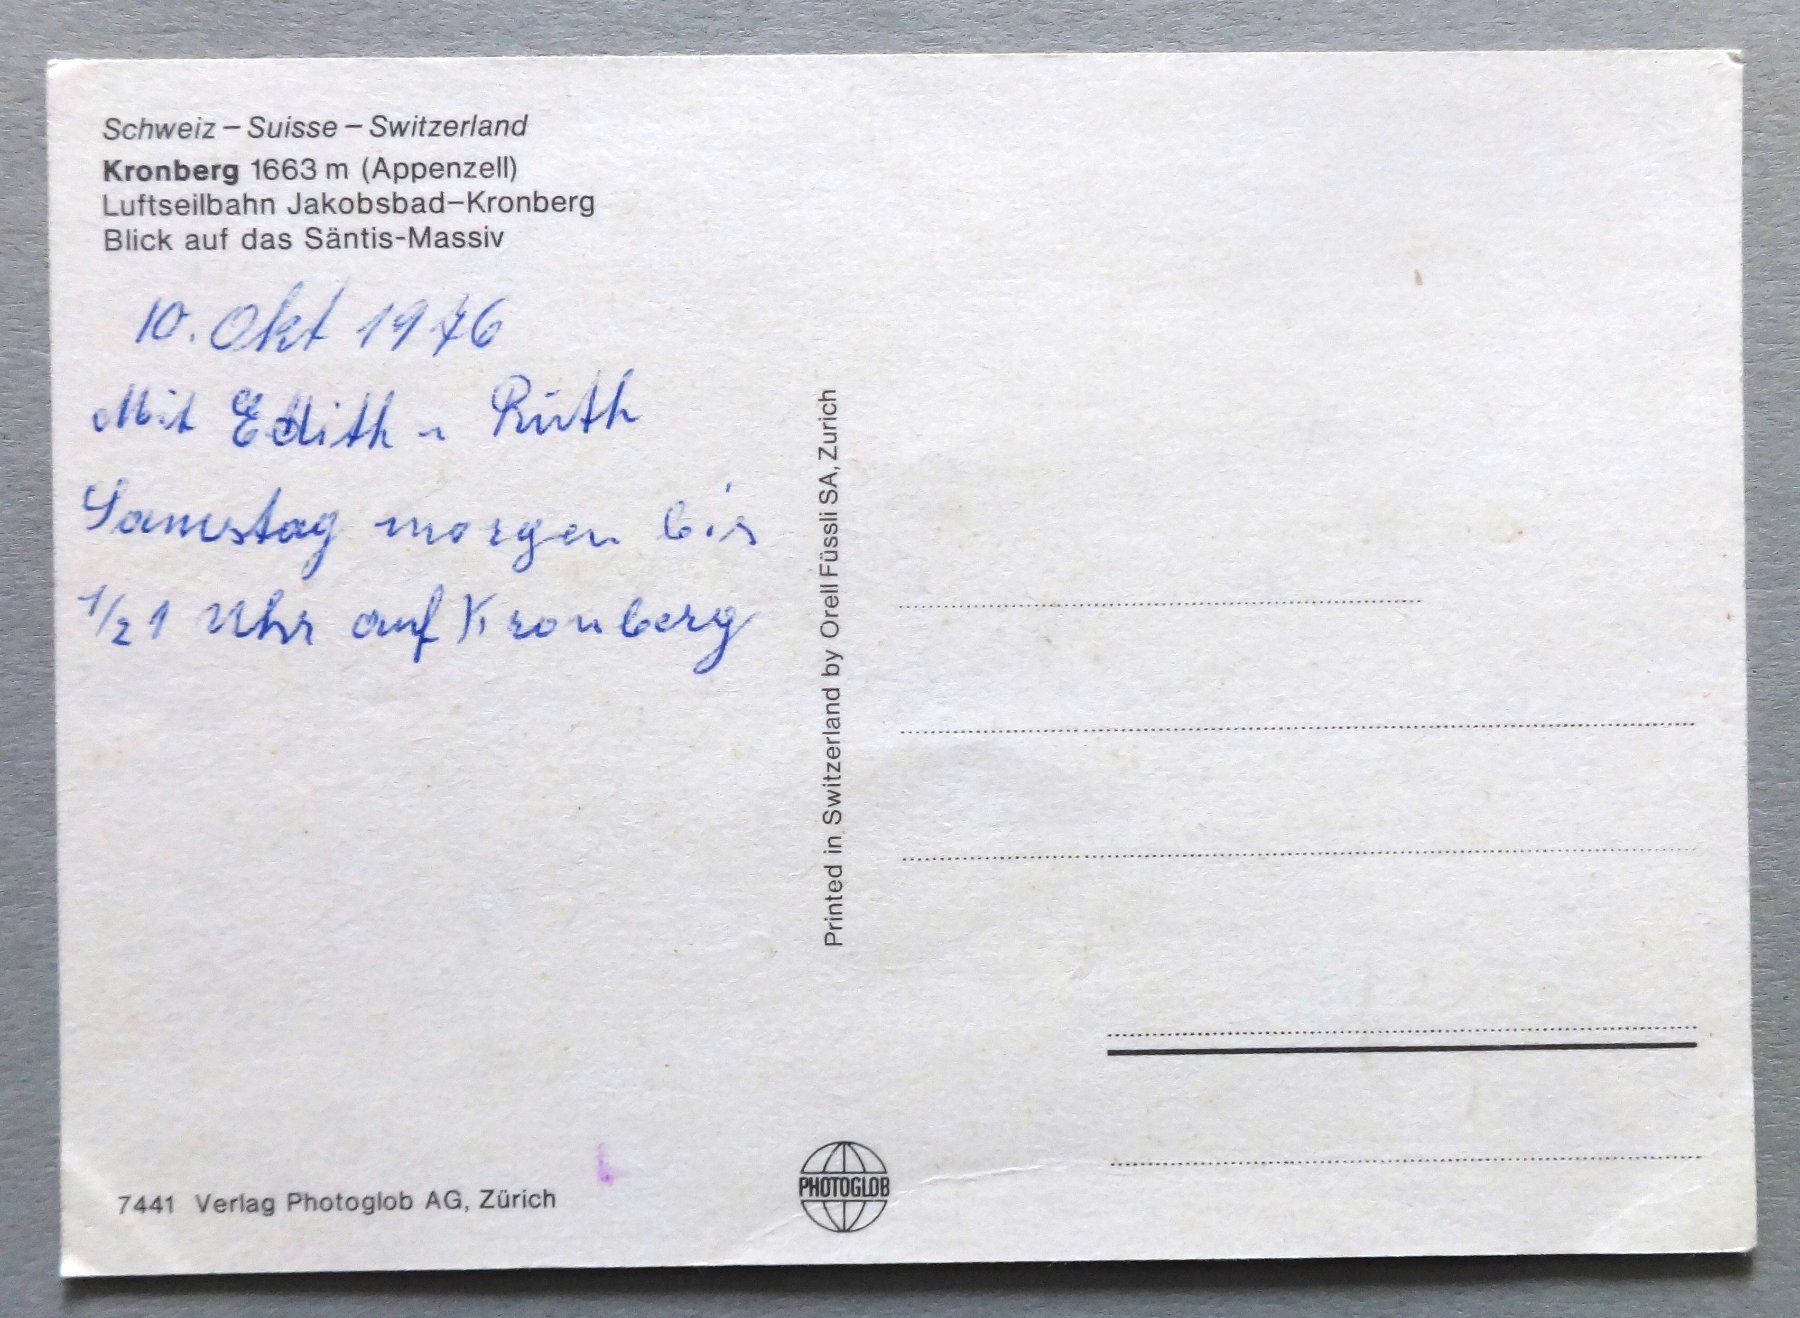 Schweiz – Suisse – Switzerland
Kronberg 1663 m (Appenzell)
Luftseilbahn Jakobsbad–Kronberg
Blick auf das Säntis-Massiv
10. Okt 1976
Mit Edith u Ruth
Samstag morgen bis
1/2 1 Uhr auf Kronberg
Printed in Switzerland by Orell Füssli SA, Zurich
7441 Verlag Photoglob AG, Zürich
PHOTOGLOB